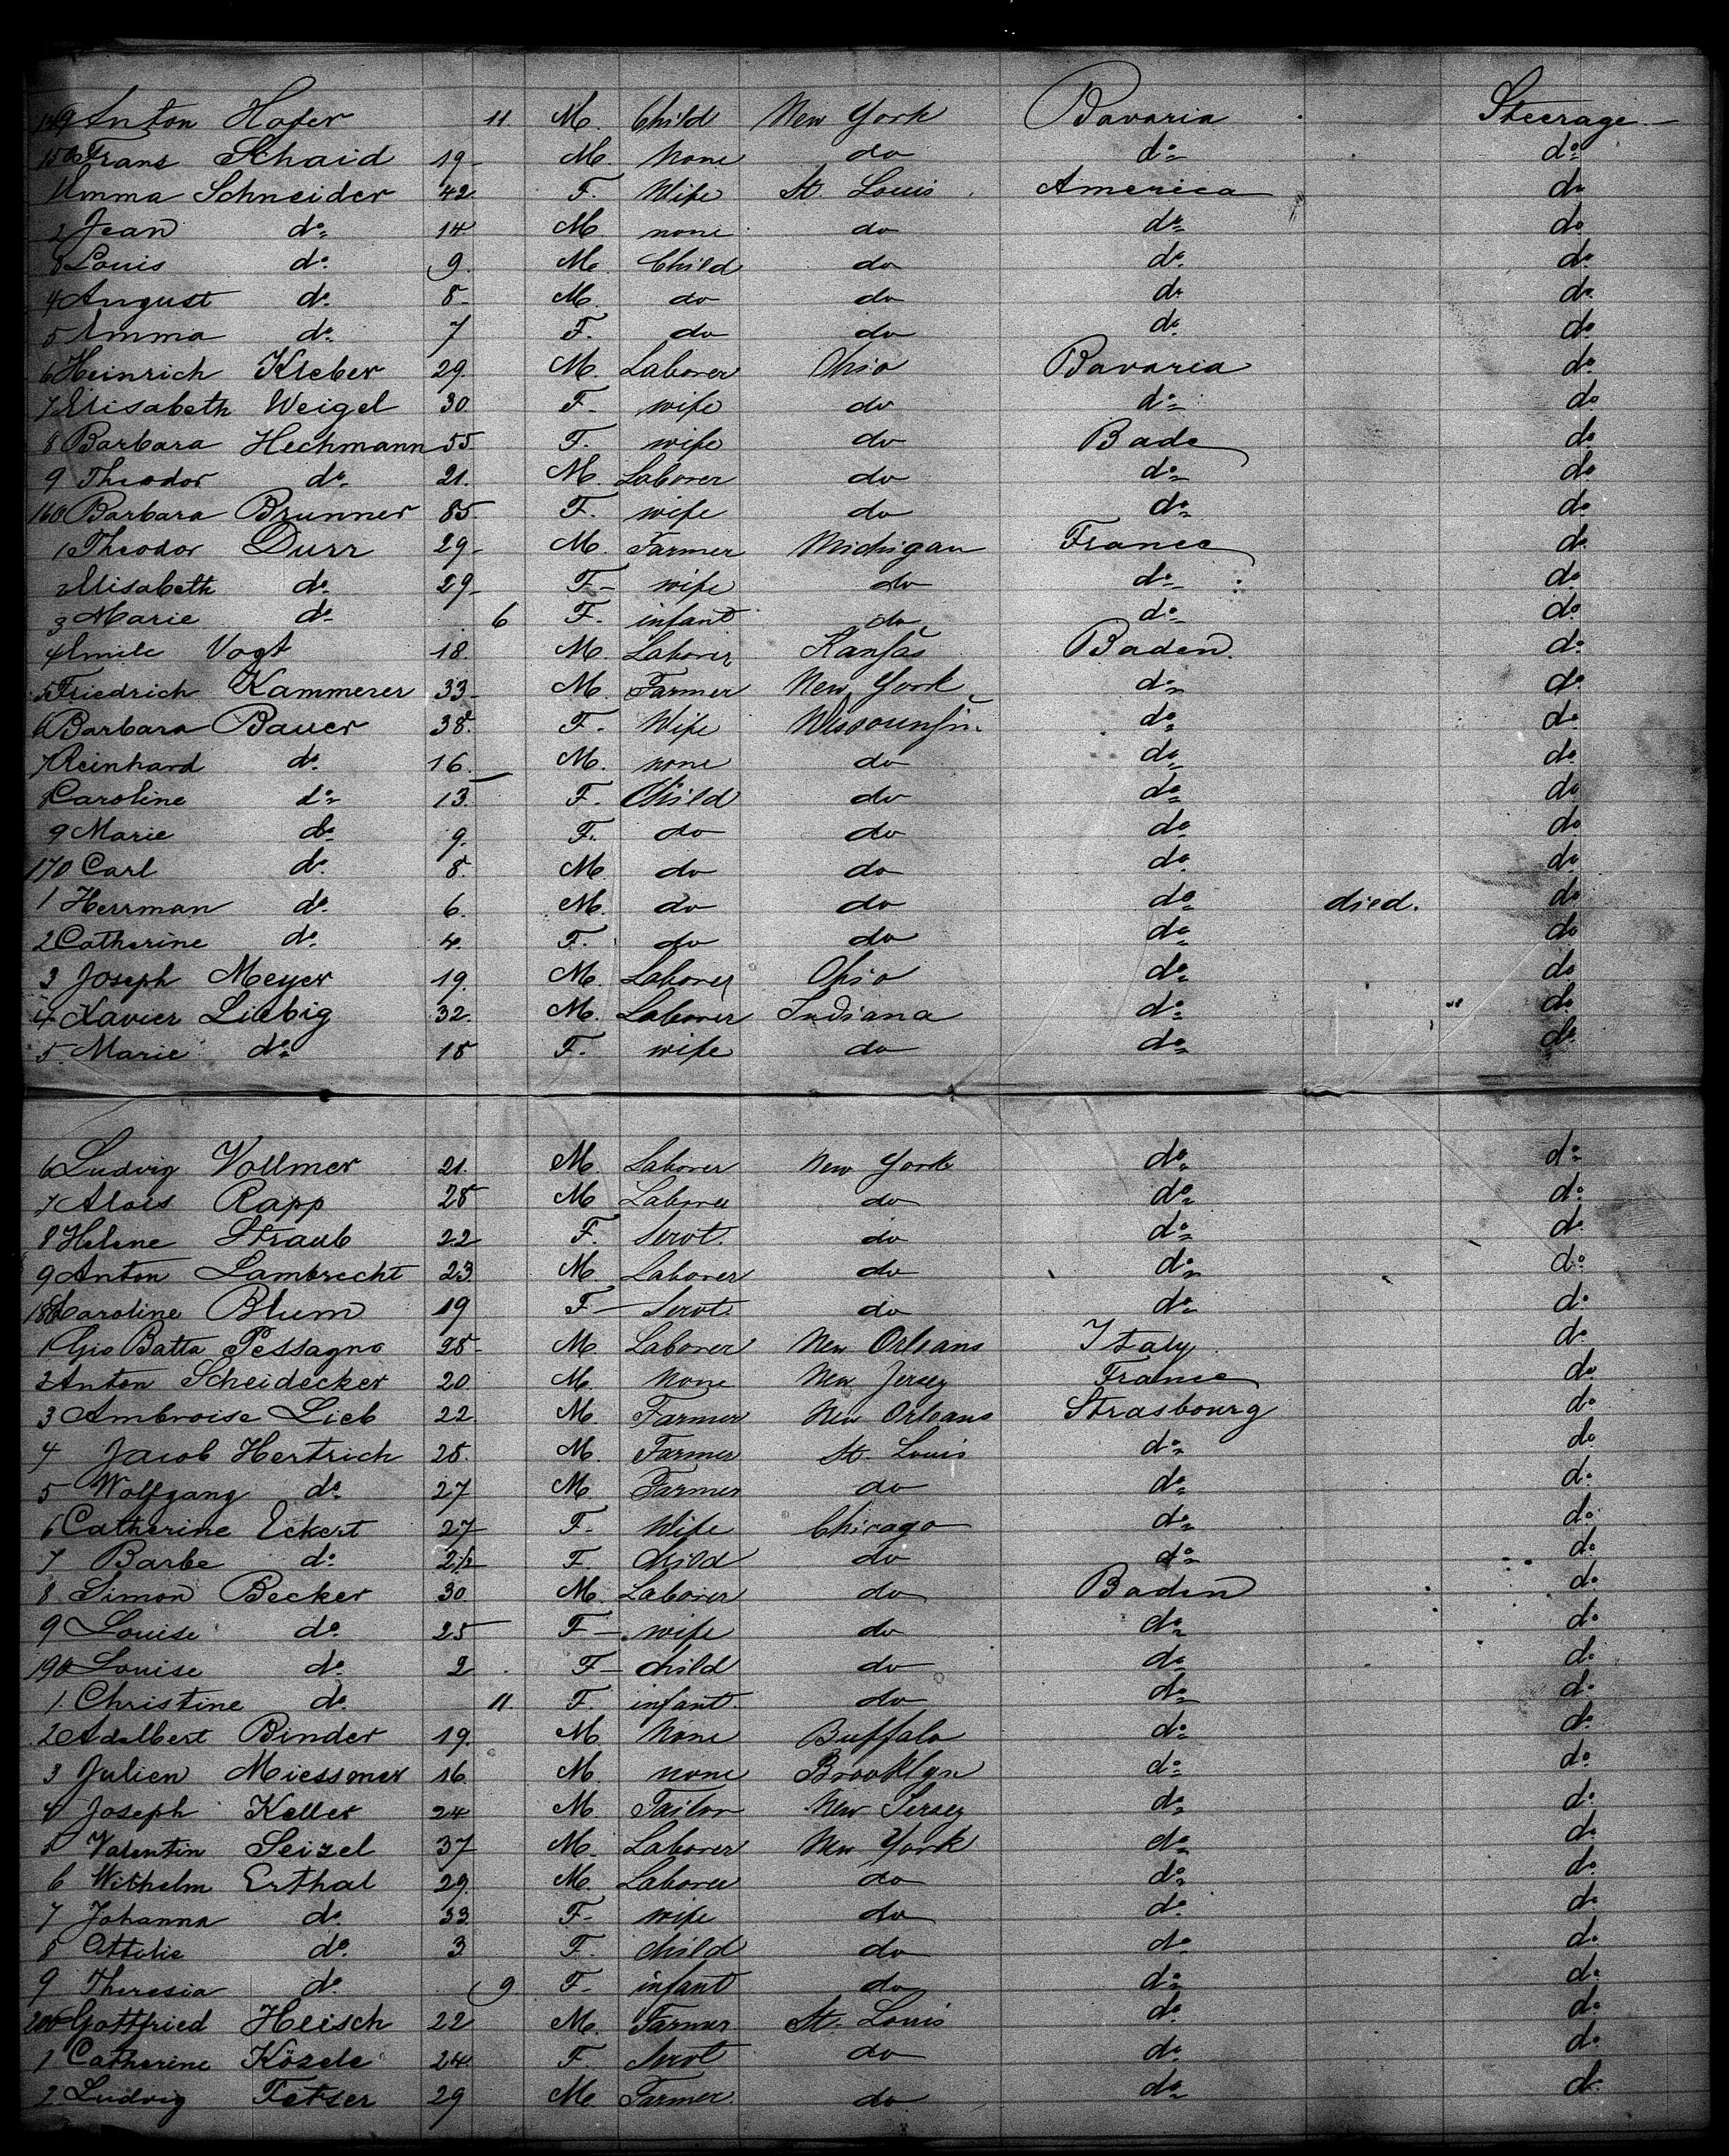 149 Anton Hofer 11. M. Child New York Bavaria Steerage
150 Frans Schaid 19 M. None do do do
1 Emma Schneider 42 F. Wife St. Louis America do
2 Jean do 14 M. none do do do
3 Louis do 9. M. Child do do do
4 August do 8 M. do do do do
5 Emma do 7 F. do do do do
6 Heinrich Kleber 29. M. Laborer Ohio Bavaria do
7 Elisabeth Weigel 30 F. wife do do do
8 Barbara Hechmann 55 F. wife do Bade do
9 Theodor do 21. M. Laborer do do do
160 Barbara Brunner 85 F. wife do do do
1 Theodor Durr 29 M. Farmer Michigan France do
2 Elisabeth do 29 F wife do do do
3 Marie do 6 F. infant do do do
4 Emile Vogt 18. M. Laborer Kansas Baden. do
5 Friedrich Kammerer 33 M. Farmer New York do do
6 Barbara Bauer 38. F. Wife Wissounsin do do
7 Reinhard do 16. M. none do do do
8 Caroline do 13. F. Child do do do
9 Marie do 9. F. do do do do
170 Carl do 8. M. do do do do
1 Herrman do 6. M. do do do died. do
2 Catherine do 4. F. do do do do
3 Joseph Meyer 19. M. Laborer Ohio do do
4 Xavier Liebig 32. M. Laborer Indiana do do
5. Marie do 18 F. wife do do do
6 Ludvig Vollmer 21. M. Laborer New York do do
7 Alois Rapp 28 M Laborer do do do
8 Helene Straub 22 F. Servt. do do do
9 Anton Lambrecht 23 M. Laborer do do do
180 Caroline Blum 19 F Servt. do do do
1 Gio Batta Pessagno 28 M Laborer New Orleans Italy do
2 Anton Scheidecker 20 M. None New Jersey France do
3 Ambroise Lieb 22 M Farmer New Orleans Strasbourg do
4 Jacob Hertrich 28. M. Farmer St. Louis do do
5 Wolfgang do 27 M Farmer do do do
6 Catherine Eckert 27 F. Wife Chicago do do
7 Barbe do 2½ F Child do do do
8 Simon Becker 30 M. Laborer do Baden do
9 Louise do 25 F wife do do do
190 Louise do 2 F child do do do
1. Christine do 11. F. infant. do do do
2 Adalbert Binder 19. M. None Buffalo do do
3 Julien Miessmer 16 M. none Brooklyn do do
4 Joseph Keller 24 M Tailor New Jersey do do
5 Valentin Seizel 37 M. Laborer New York do do
6 Wilhelm Erthal 29. M. Laborer do do do
7 Johanna do 33 F. wife do do do
8 Ottilie do 3 F. child do do do
9 Theresia do 9 F. infant do do do
200 Gottfried Heisch 22 M. Farmer St. Louis do do
1 Catherine Közele 24 F. Servt do do do
2 Ludvig Fetser 29 M. Farmer. do do do